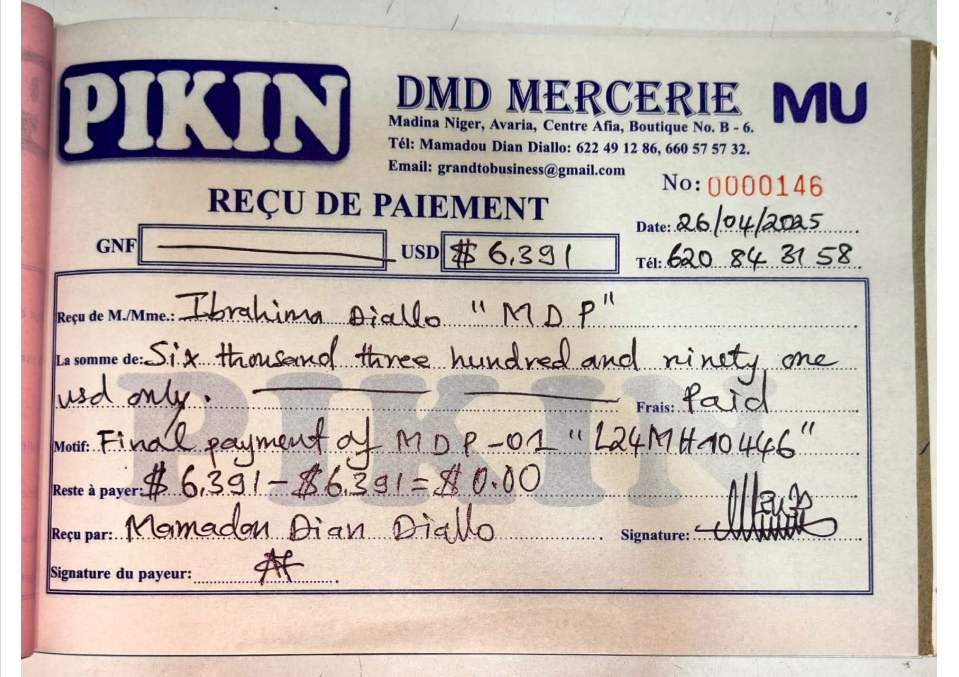 PIKIN
DMD MERCERIE
MU
Madina Niger, Avaria, Centre Afia, Boutique No. B - 6.
Tél: Mamadou Dian Diallo: 622 49 12 86, 660 57 57 32.
Email: grandtobusiness@gmail.com
No: 0000146
REÇU DE PAIEMENT
Date: 26/04/2025
GNF USD $ 6,391
Tél: 620 84 31 58
Reçu de M./Mme.: Ibrahima Diallo "MDP"
La somme de: Six thousand three hundred and ninety one
usd only. Frais: Paid
PIKIN
Motif: Final payment of MDP-01 "L24MH10446"
Reste à payer: $ 6,391 - $6,391 = $ 0.00
Reçu par: Mamadou Dian Diallo Signature:
Signature du payeur: